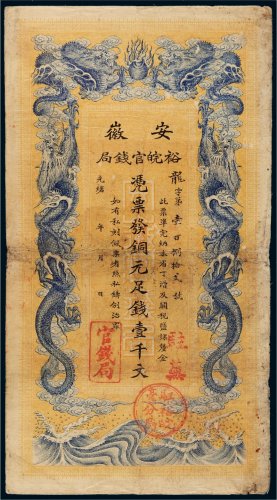 安徽
裕皖官錢局
龍字第壹百捌拾弍號
此票準完納本省丁漕及關稅鹽課釐金
憑票發銅元足錢壹千文
如有私刻假票者照私鑄例治罪
光緒 年 月 日
官錢局